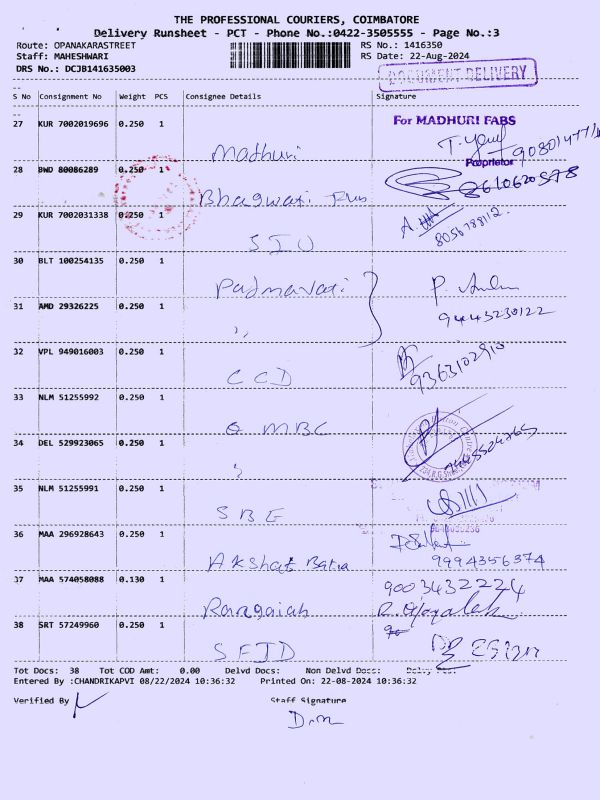 THE PROFESSIONAL COURIERS, COIMBATORE
Delivery Runsheet - PCT - Phone No.:0422-3505555 - Page No.:3
Route: OPANAKARASTREET RS No.: 1416350
Staff: MAHESHWARI RS Date: 22-Aug-2024
DRS No.: DCJB141635003
DOCUMENT DELIVERY
S No Consignment No Weight PCS Consignee Details Signature
For MADHURI FABS
27 KUR 7002019696 0.250 1 Madhuri
Proprietor
28 BWD 80086289 0.250 1 Bhagwati
29 KUR 7002031338 0.250 1 SIU
8056788112
30 BLT 100254135 0.250 1 Padmavati
31 AMD 29326225 0.250 1 ,,
9443230122
32 VPL 949016003 0.250 1 CCD
9363102910
33 NLM 51255992 0.250 1 MBC
34 DEL 529923065 0.250 1 ,,
35 NLM 51255991 0.250 1 SBE
36 MAA 296928643 0.250 1 Akshat Batia
9994356374
37 MAA 574058088 0.130 1 Rangaiah
9003432224
38 SRT 57249960 0.250 1
Tot Docs: 38 Tot COD Amt: 0.00 Delvd Docs: Non Delvd Docs:
Entered By :CHANDRIKAPVI 08/22/2024 10:36:32 Printed On: 22-08-2024 10:36:32
Verified By Staff Signature